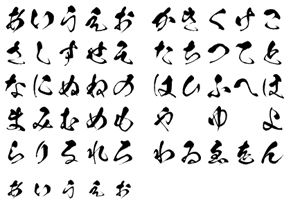 あいうえお かきくけこ
さしすせそ たちつてと
なにぬねの はひふへほ
まみむめも や ゆ よ
らりるれろ わゐゑをん
ぁぃぅぇぉ